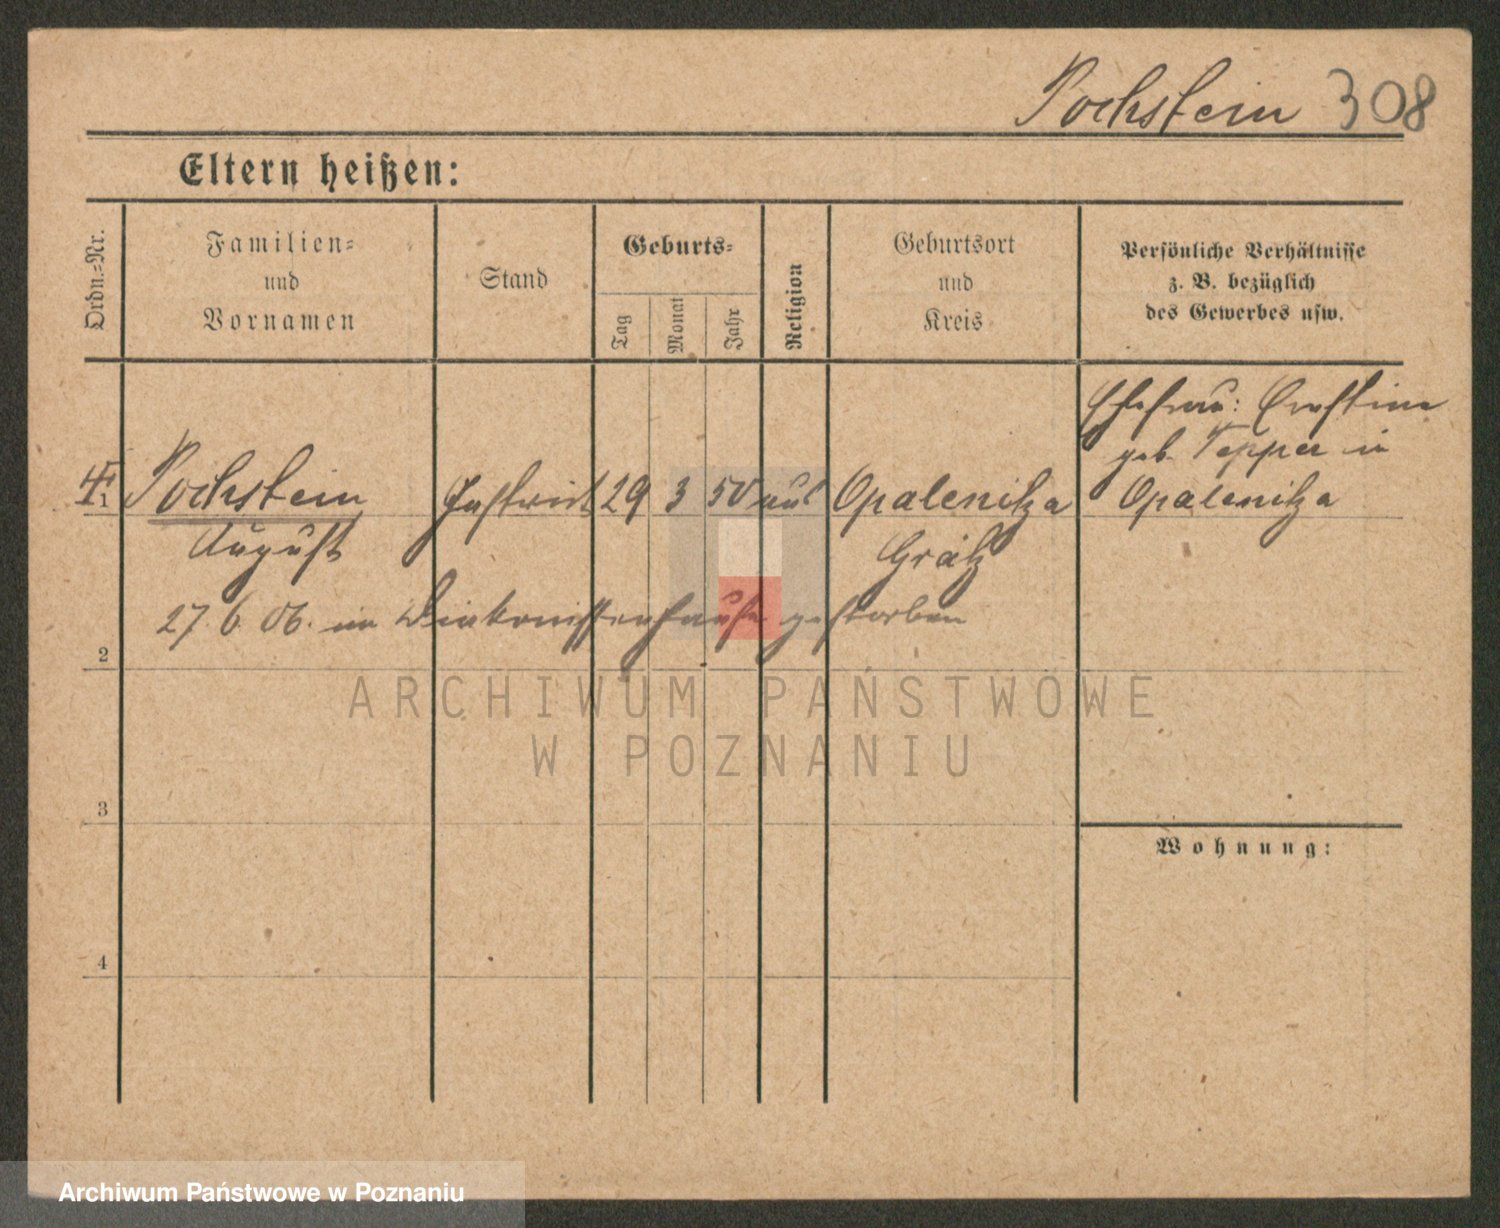 Pochstein 308
Eltern heißen:
Ordn.=Nr.
Familien=
und
Vornamen
Stand
Geburts=
Tag
Monat
Jahr
Religion
Geburtsort
und
Kreis
Persönliche Verhältnisse
z. B. bezüglich
des Gewerbes usw.
Ehefrau: Ernstine
geb. Tepper in
Opalenitza
1 Pochstein Gastwirt 29 3 50 Opalenitza
August Grätz
27. 6. 06. im Diakonissenhause gestorben
2
3
4
Wohnung:
ARCHIWUM PAŃSTWOWE
W POZNANIU
Archiwum Państwowe w Poznaniu